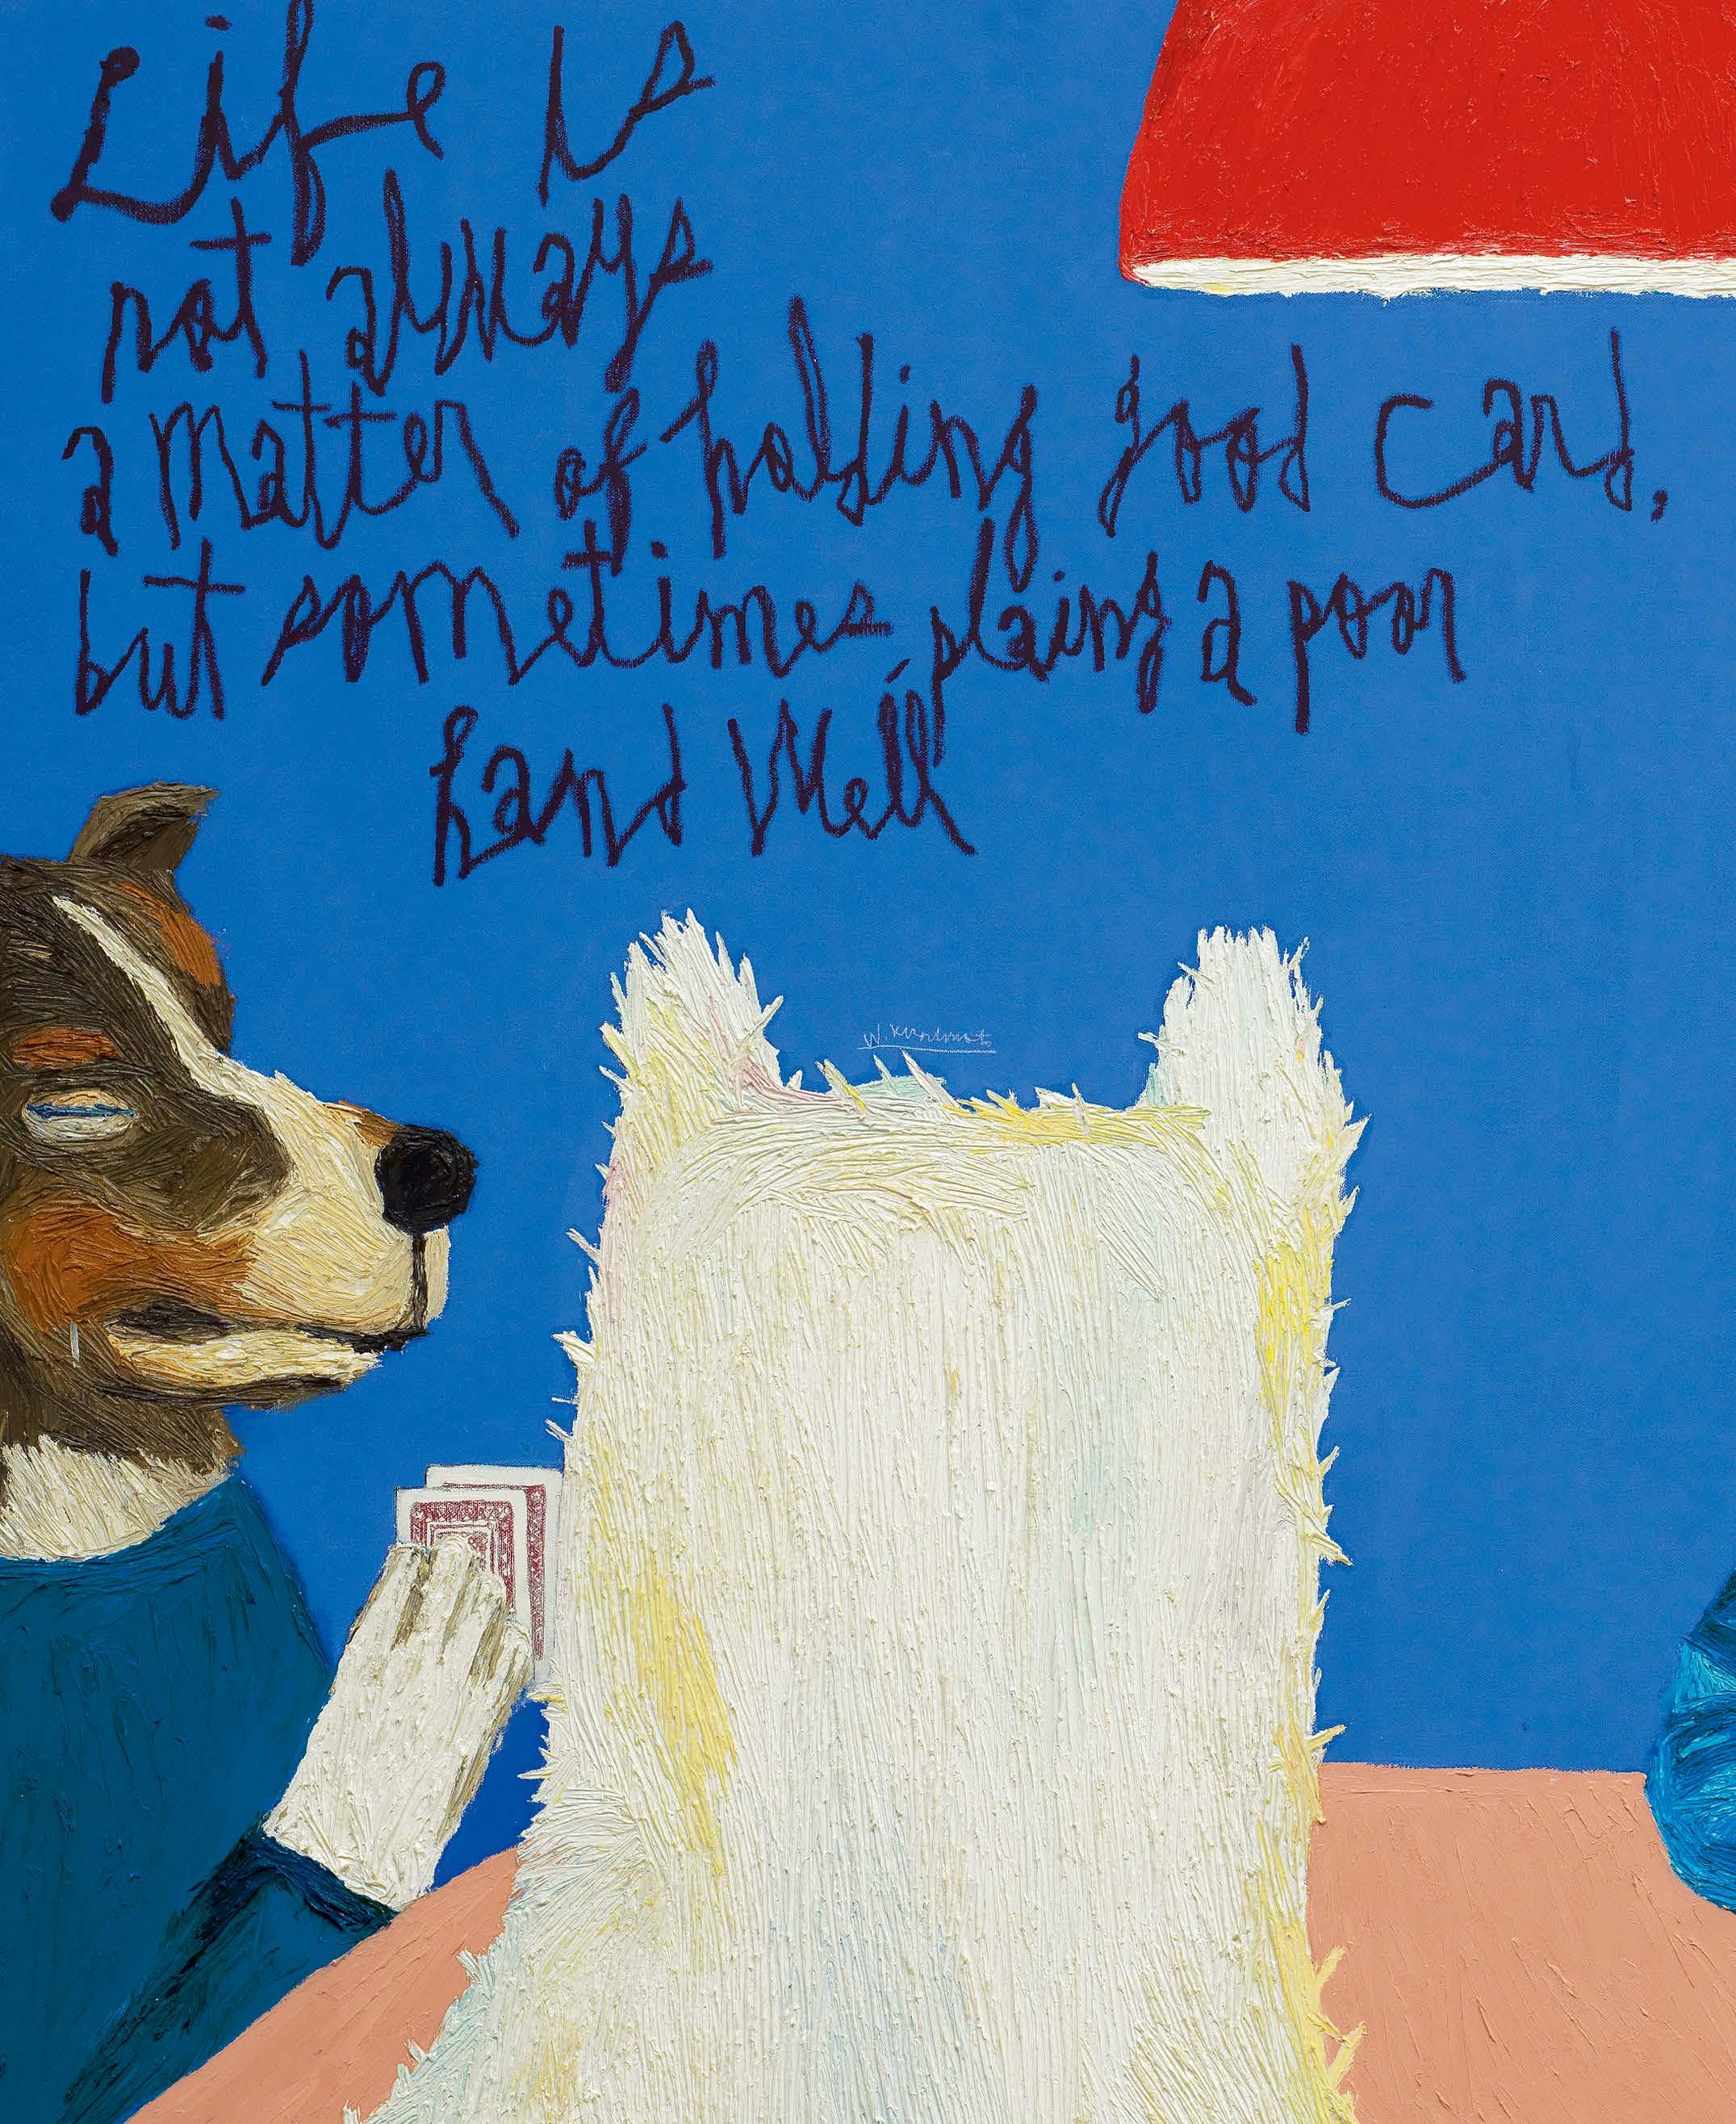 Life is
not always
a matter of holding good card,
but sometimes, plaing a poor
hand Well